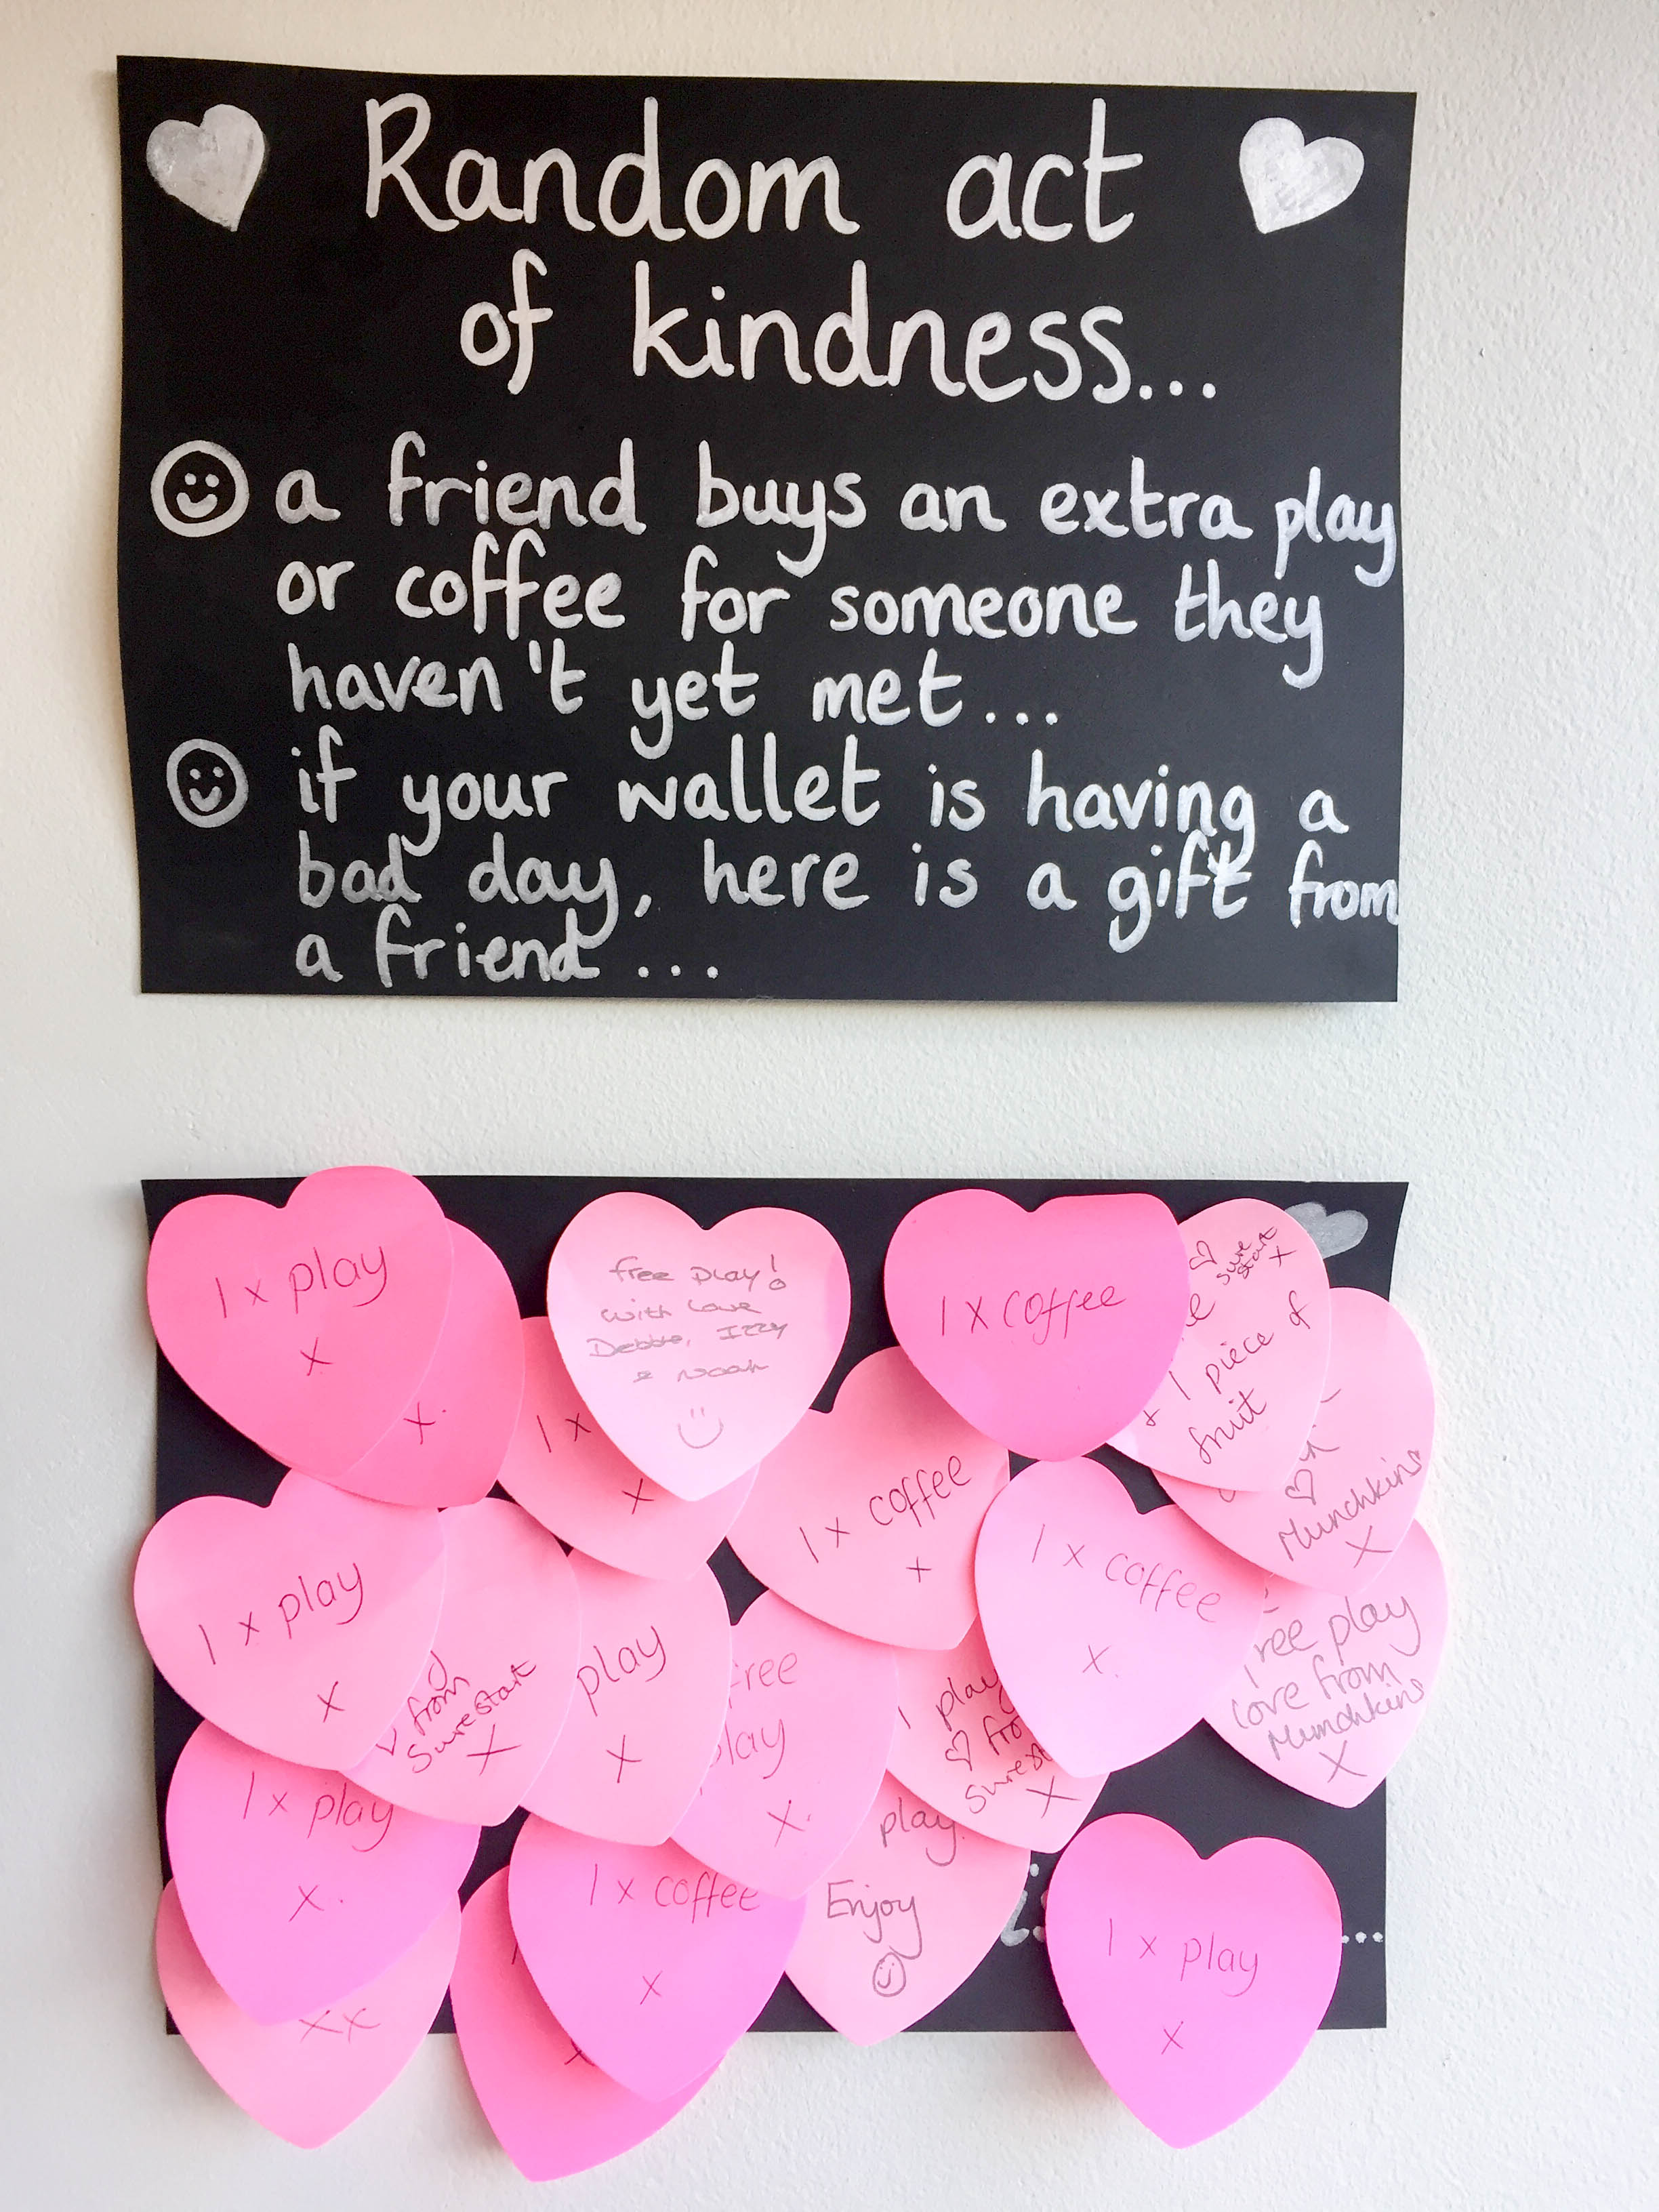 Random act
of kindness...
a friend buys an extra play
or coffee for someone they
haven't yet met...
if your wallet is having a
bad day, here is a gift from
a friend...
1 x play
x
x.
1 x
x
free play!
with love
Debbie, Izzy
& Noah
1 x coffee
Sure
Start
x
+ 1 piece of
fruit
Munchkins
x
1 x coffee
x
1 x coffee
x.
free play
love from
Munchkins
x
1 x play
x
from
Surestart
x
play
x
free
play
x.
1 play
from
Surestart
x
1 x play
x.
xx
1 x coffee
x
x
play.
Enjoy
...
1 x play
x